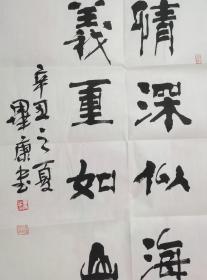 情深似海
義重如山
辛丑之夏
畢康书